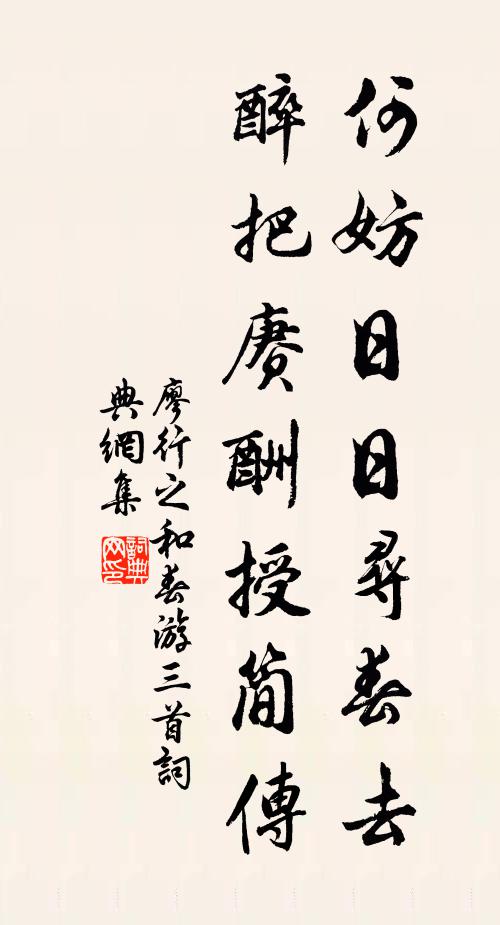 何妨日日尋春去
醉把賡酬授簡傳
廖行之和春游三首詞
典網集
詞典
网印